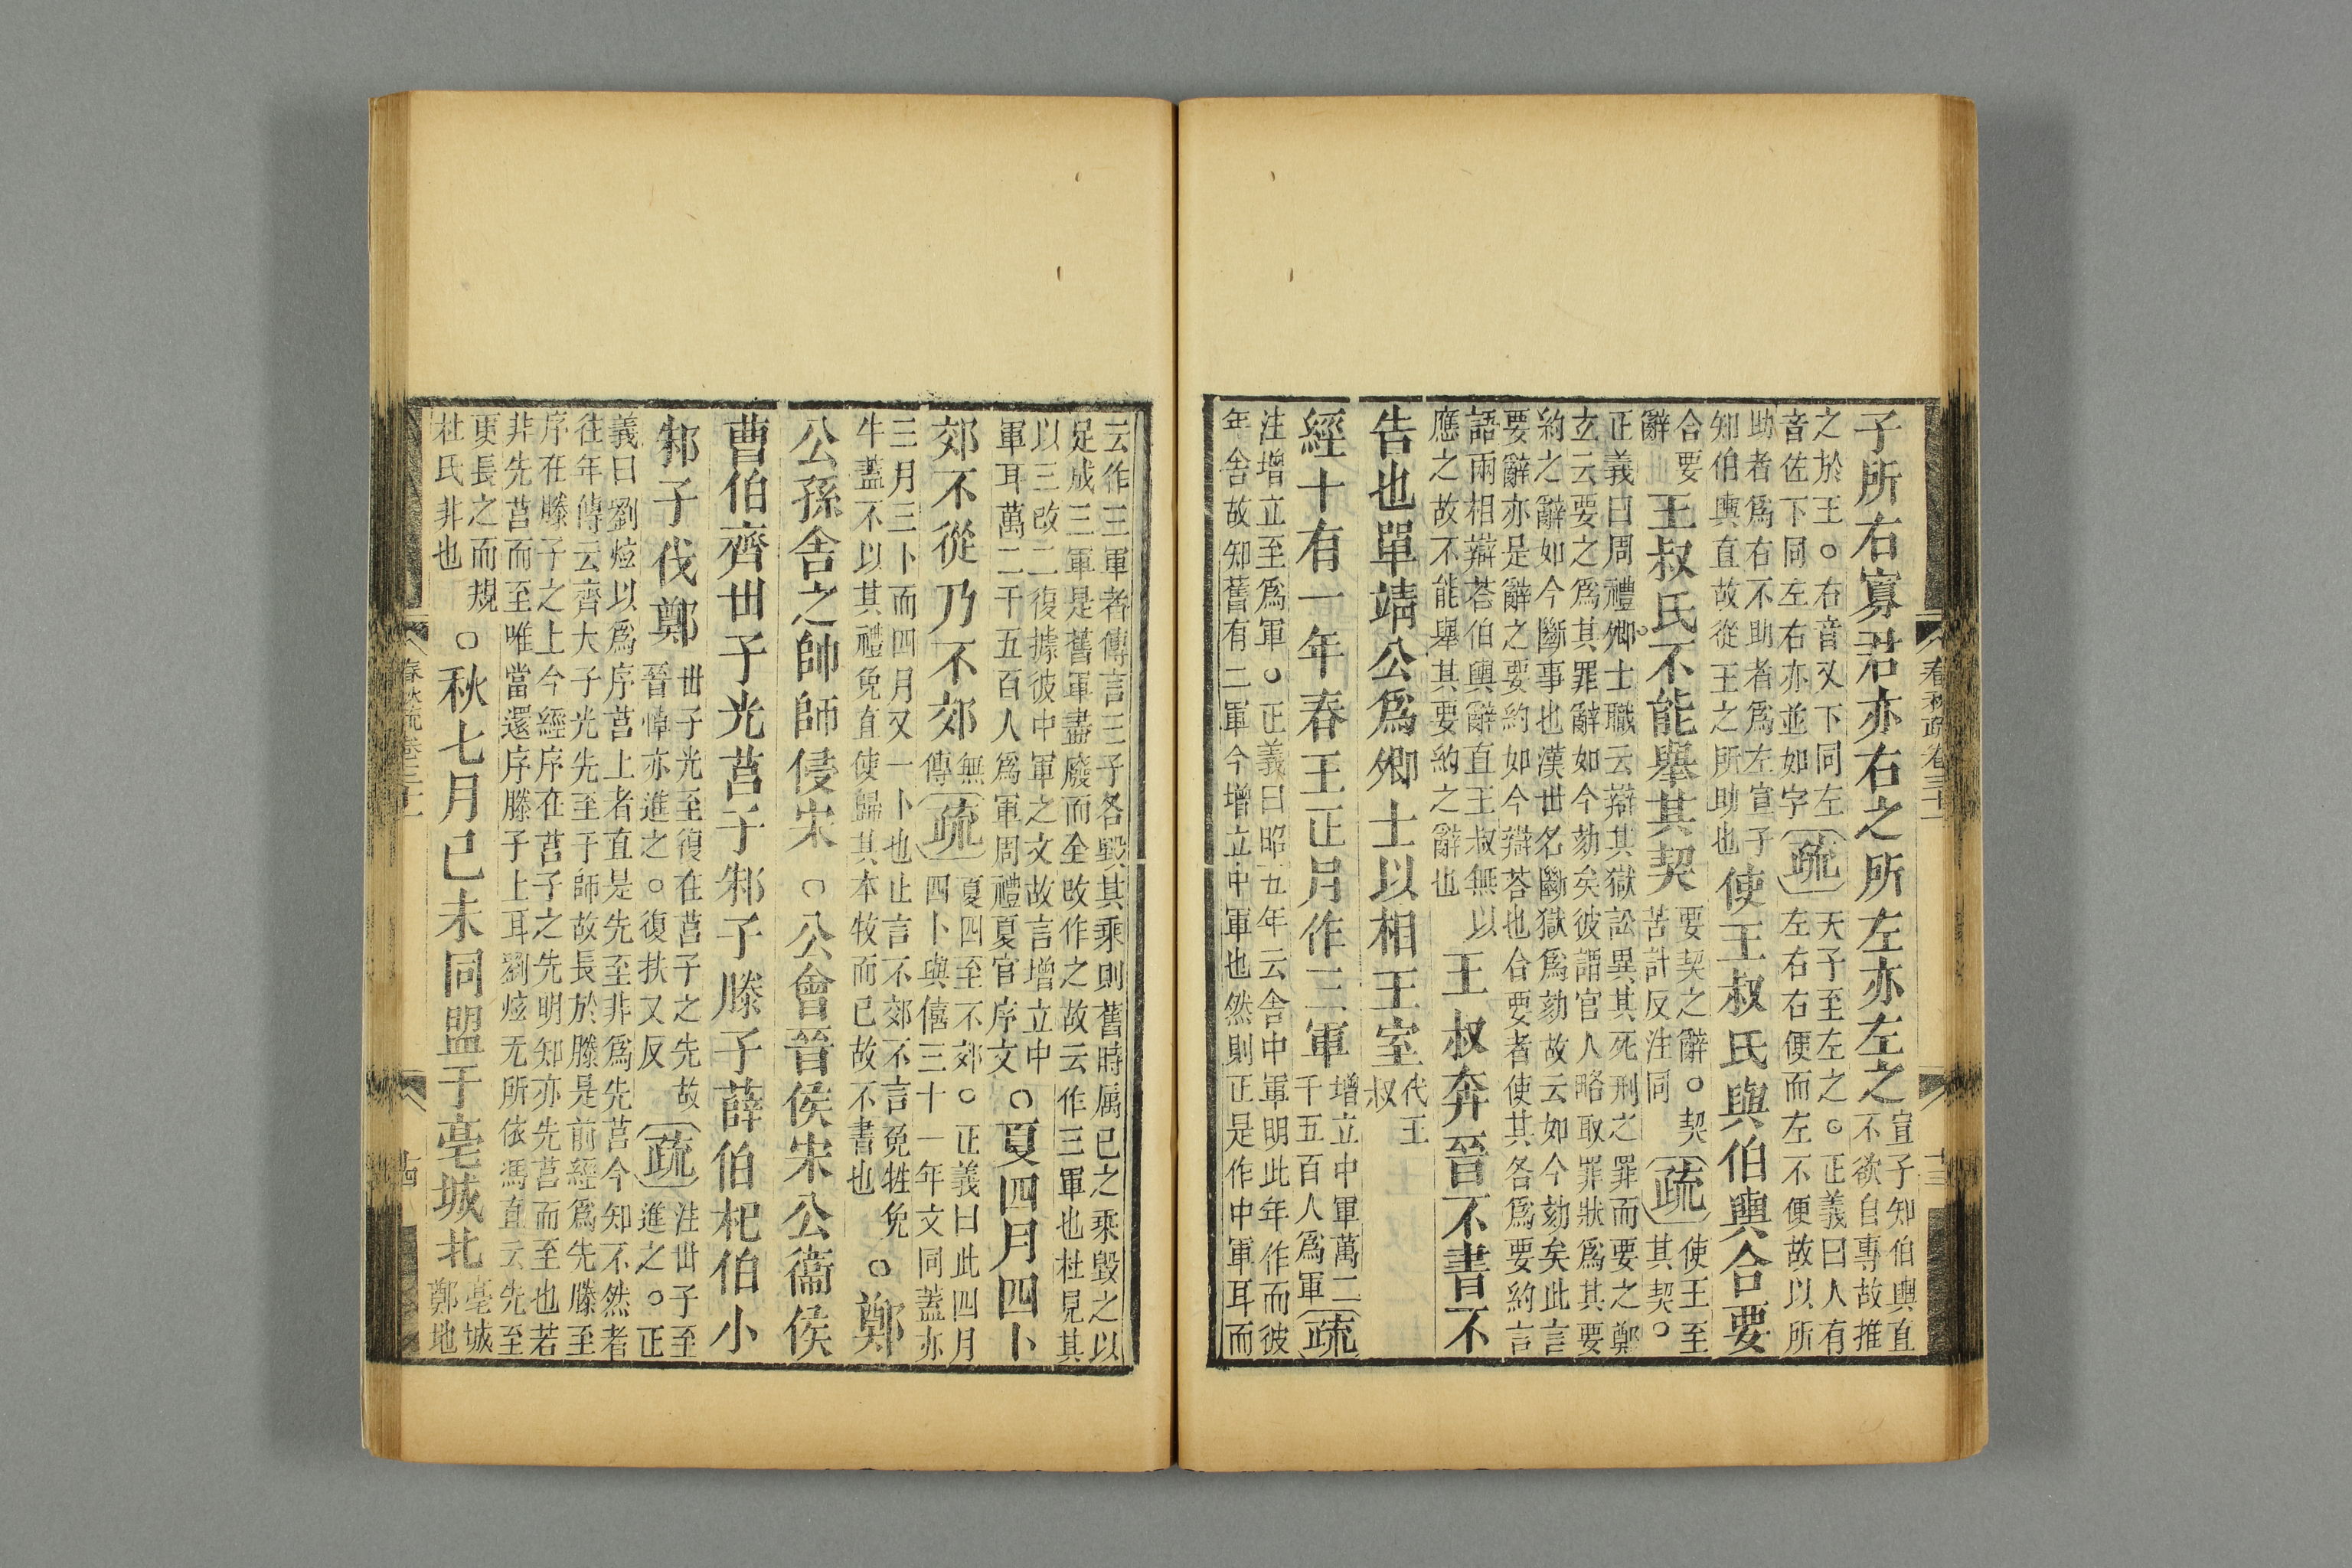 春秋疏卷三十一
十三
子所右寡君亦右之所左亦左之宣子知伯輿直
不欲自專故推
之於王○右音又下同左
音佐下同左右亦並如字疏天子至左之○正義曰人有
左右右便而左不便故以所
助者爲右不助者爲左宣子
知伯輿直故從王之所助也使王叔氏與伯輿合要
合要
辭王叔氏不能舉其契要契之辭○契
苦計反注同疏使王至
其契○
正義曰周禮鄉士職云辯其獄訟異其死刑之罪而要之鄭
玄云要之爲其罪辭如今劾矣彼謂官人略取罪狀爲其要
約之辭如今斷事也漢世名斷獄爲劾故云如今劾矣此言
要辭亦是辭之要約如今辯荅也合要者使其各爲要約言
語兩相辯荅伯輿辭直王叔無以
應之故不能舉其要約之辭也王叔奔晉不書不
告也單靖公爲卿士以相王室代王
叔
經十有一年春王正月作三軍增立中軍萬二
千五百人爲軍疏
注增立至爲軍○正義曰昭五年云舍中軍明此年作而彼
年舍故知舊有二軍今增立中軍也然則正是作中軍耳而
云作三軍者傳言三子各毀其乘則舊時屬己之乘毀之以
足成三軍是舊軍盡廢而全改作之故云作三軍也杜見其
以三改二復據彼中軍之文故言增立中
軍耳萬二千五百人爲軍周禮夏官序文○夏四月四卜
郊不從乃不郊無
傳疏夏四至不郊○正義曰此四月
四卜與僖三十一年文同蓋亦
三月三卜而四月又一卜也止言不郊不言免牲免
牛蓋不以其禮免直使歸其本牧而已故不書也○鄭
公孫舍之帥師侵宋○公會晉侯宋公衞侯
曹伯齊世子光莒子邾子滕子薛伯杞伯小
邾子伐鄭世子光至復在莒子之先故
晉悼亦進之○復扶又反疏注世子至
進之○正
義曰劉炫以爲序莒上者直是先至非爲先莒今知不然者
往年傳云齊大子光先至于師故長於滕是前經爲先滕至
序在滕子之上今經序在莒子之先明知亦先莒而至也若
非先莒而至唯當還序滕子上耳劉炫无所依馮直云先至
更長之而規
杜氏非也○秋七月己未同盟于亳城北亳城
鄭地
春秋疏卷三十一
十四